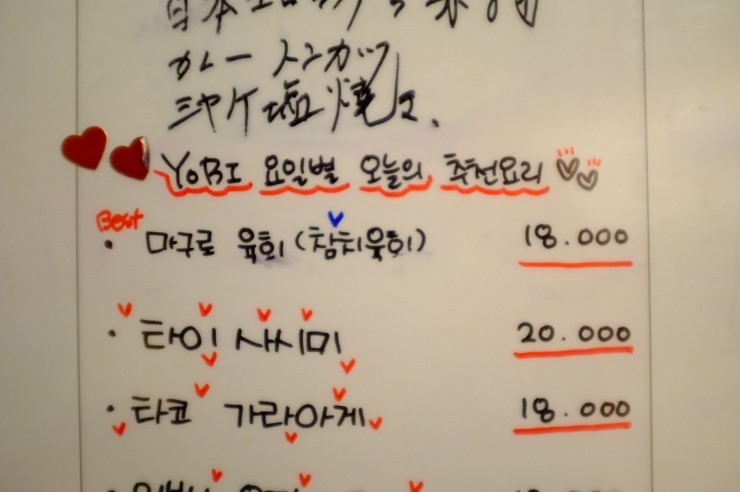 日本
カレー トンカツ
シャケ塩焼
YOBI 요일별 오늘의 추천요리
Best
· 마구로 육회 (참치육회) 18.000
· 타이 사시미 20.000
· 타코 가라아게 18.000